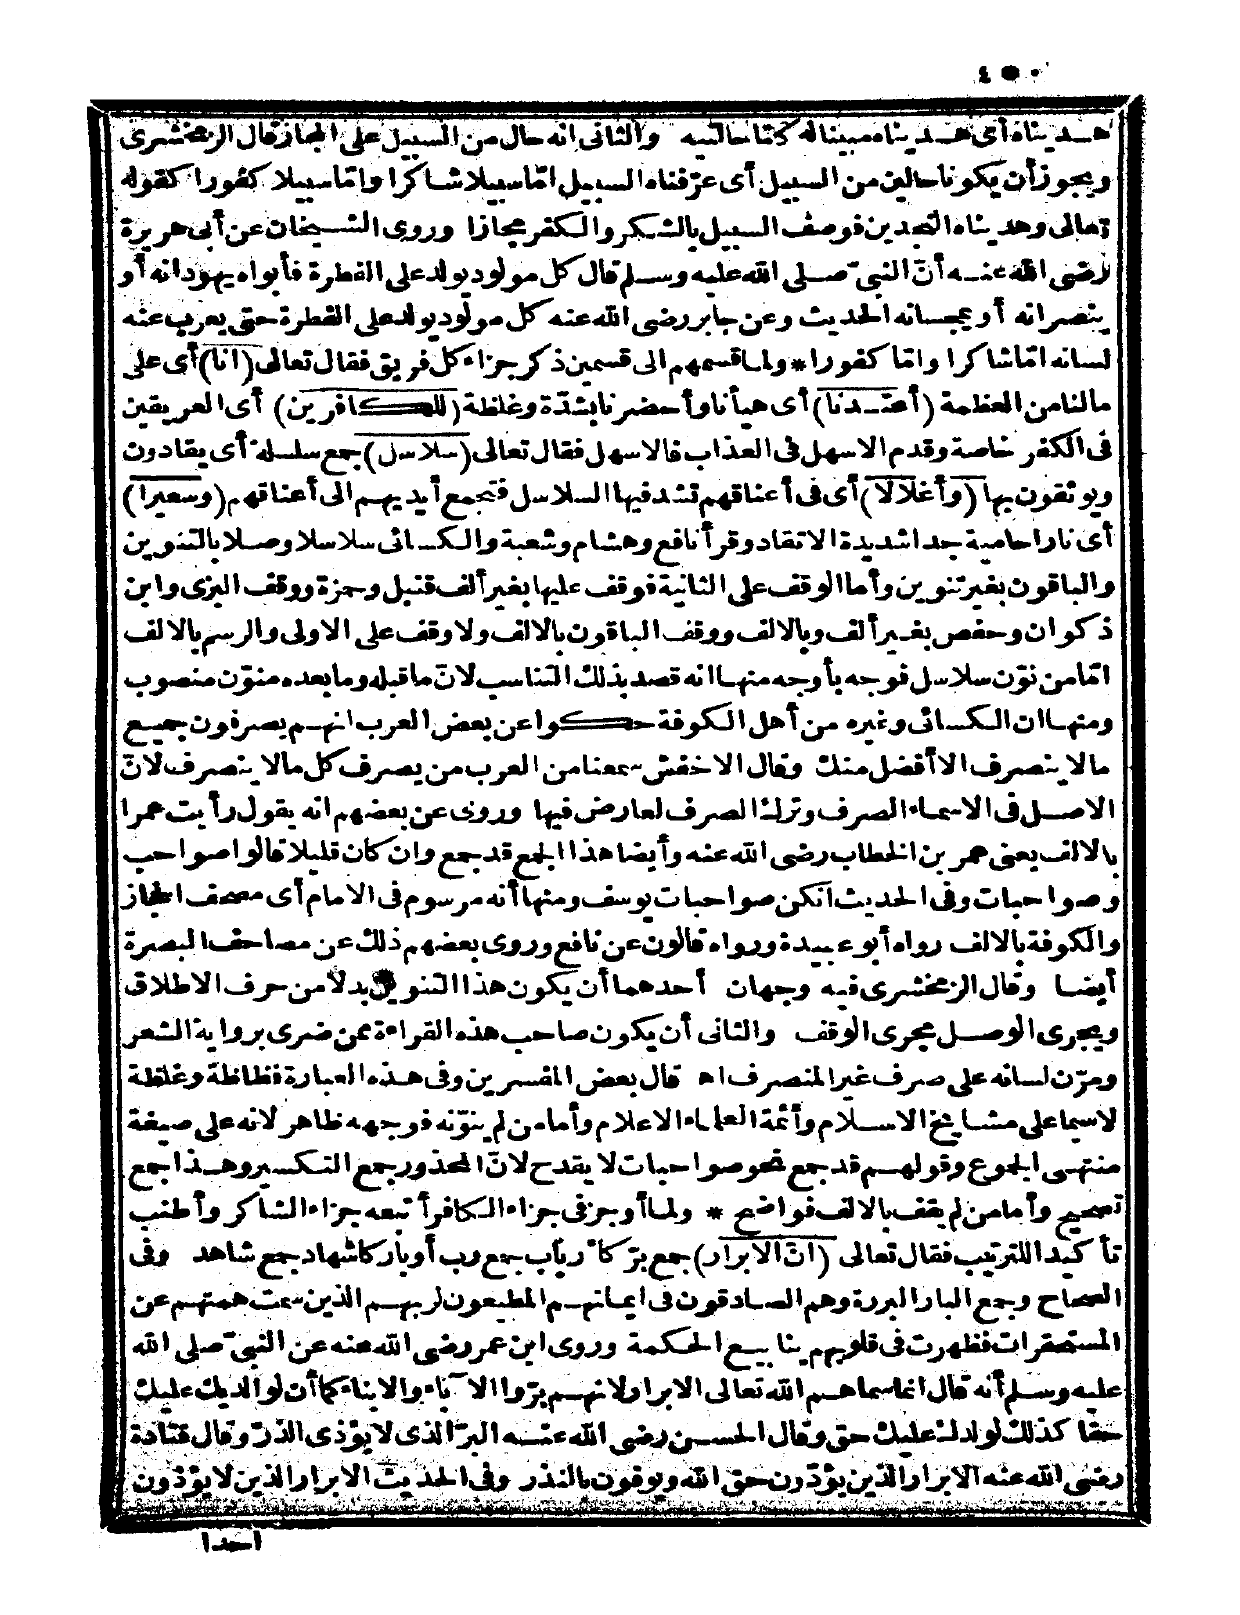 ٤٥٠
هديناه أى هديناه مبينا له كلتا حالتيه والثانى انه حال من السبيل على المجاز قال الزمخشرى
ويجوز أن يكونا حالين من السبيل أى عرّفناه السبيل امّا سبيلا شاكرا وامّا سبيلا كفورا كقوله
تعالى وهديناه النجدين فوصف السبيل بالشكر والكفر مجازا وروى الشيخان عن أبى هريرة
رضى الله عنه أنّ النبىّ صلى الله عليه وسلم قال كل مولود يولد على الفطرة فأبواه يهودانه أو
ينصرانه أو يمجسانه الحديث وعن جابر رضى الله عنه كل مولود يولد على الفطرة حتى يعرب عنه
لسانه امّا شاكرا وامّا كفورا * ولما قسمهم الى قسمين ذكر جزاء كل فريق فقال تعالى (انا) أى على
مالنا من العظمة (أعتدنا) أى هيأنا وأحضرنا بشدّة وغلظة (للكافرين) أى العريقين
فى الكفر خاصة وقدم الاسهل فى العذاب فالاسهل فقال تعالى (سلاسل) جمع سلسلة أى يقادون
ويوثقون بها (وأغلالا) أى فى أعناقهم تشد فيها السلاسل فتجمع أيديهم الى أعناقهم (وسعيرا)
أى نارا حامية جدا شديدة الاتقاد وقرأ نافع وهشام وشعبة والكسائى سلاسلا وصلا بالتنوين
والباقون بغير تنوين وأما الوقف على الثانية فوقف عليها بغير ألف قنبل وحمزة ووقف البزى وابن
ذكوان وحفص بغير ألف وبالالف ووقف الباقون بالالف ولا وقف على الاولى والرسم بالالف
امّا من نوّن سلاسل فوجه بأوجه منها انه قصد بذلك التناسب لانّ ما قبله وما بعده منوّن منصوب
ومنها ان الكسائى وغيره من أهل الكوفة حكوا عن بعض العرب انهم يصرفون جميع
مالا ينصرف الا أفضل منك وقال الاخفش سمعنا من العرب من يصرف كل مالا ينصرف لانّ
الاصل فى الاسماء الصرف وترك الصرف لعارض فيها وروى عن بعضهم انه يقول رأيت عمرا
بالالف يعنى عمر بن الخطاب رضى الله عنه وأيضا هذا الجمع قد جمع وان كان قليلا قالوا صواحب
وصواحبات وفى الحديث انكن صواحبات يوسف ومنها أنه مرسوم فى الامام أى مصحف الحجاز
والكوفة بالالف رواه أبو عبيدة ورواه قالون عن نافع وروى بعضهم ذلك عن مصاحف البصرة
أيضا وقال الزمخشرى فيه وجهان أحدهما أن يكون هذا التنوين بدلا من حرف الاطلاق
ويجرى الوصل مجرى الوقف والثانى أن يكون صاحب هذه القراءة ممن ضرى برواية الشعر
ومرّن لسانه على صرف غير المنصرف اه قال بعض المفسرين وفى هذه العبارة فظاظة وغلظة
لاسيما على مشايخ الاسلام وأئمة العلماء الاعلام وأما من لم ينوّنه فوجهه ظاهر لانه على صيغة
منتهى الجموع وقولهم قد جمع نحو صواحبات لا يقدح لانّ المحذور جمع التكسير وهذا جمع
تصحيح وأما من لم يقف بالالف فواضح * ولما أوجز فى جزاء الكافر أتبعه جزاء الشاكر وأطنب
تأكيدا للترتيب فقال تعالى (انّ الابرار) جمع برّ كأرباب جمع رب أو بار كأشهاد جمع شاهد وفى
الصحاح وجمع البار البررة وهم الصادقون فى ايمانهم المطيعون لربهم الذين سمت همتهم عن
المستحقرات فظهرت فى قلوبهم ينابيع الحكمة وروى ابن عمر رضى الله عنه عن النبىّ صلى الله
عليه وسلم أنه قال انما سماهم الله تعالى الابرار لانهم برّوا الآباء والابناء كما أن لوالديك عليك
حقا كذلك لولدك عليك حق وقال الحسن رضى الله عنه البرّ الذى لا يؤذى الذرّ وقال قتادة
رضى الله عنه الابرار الذين يؤدّون حق الله ويوفون بالنذر وفى الحديث الابرار الذين لا يؤذون
احدا